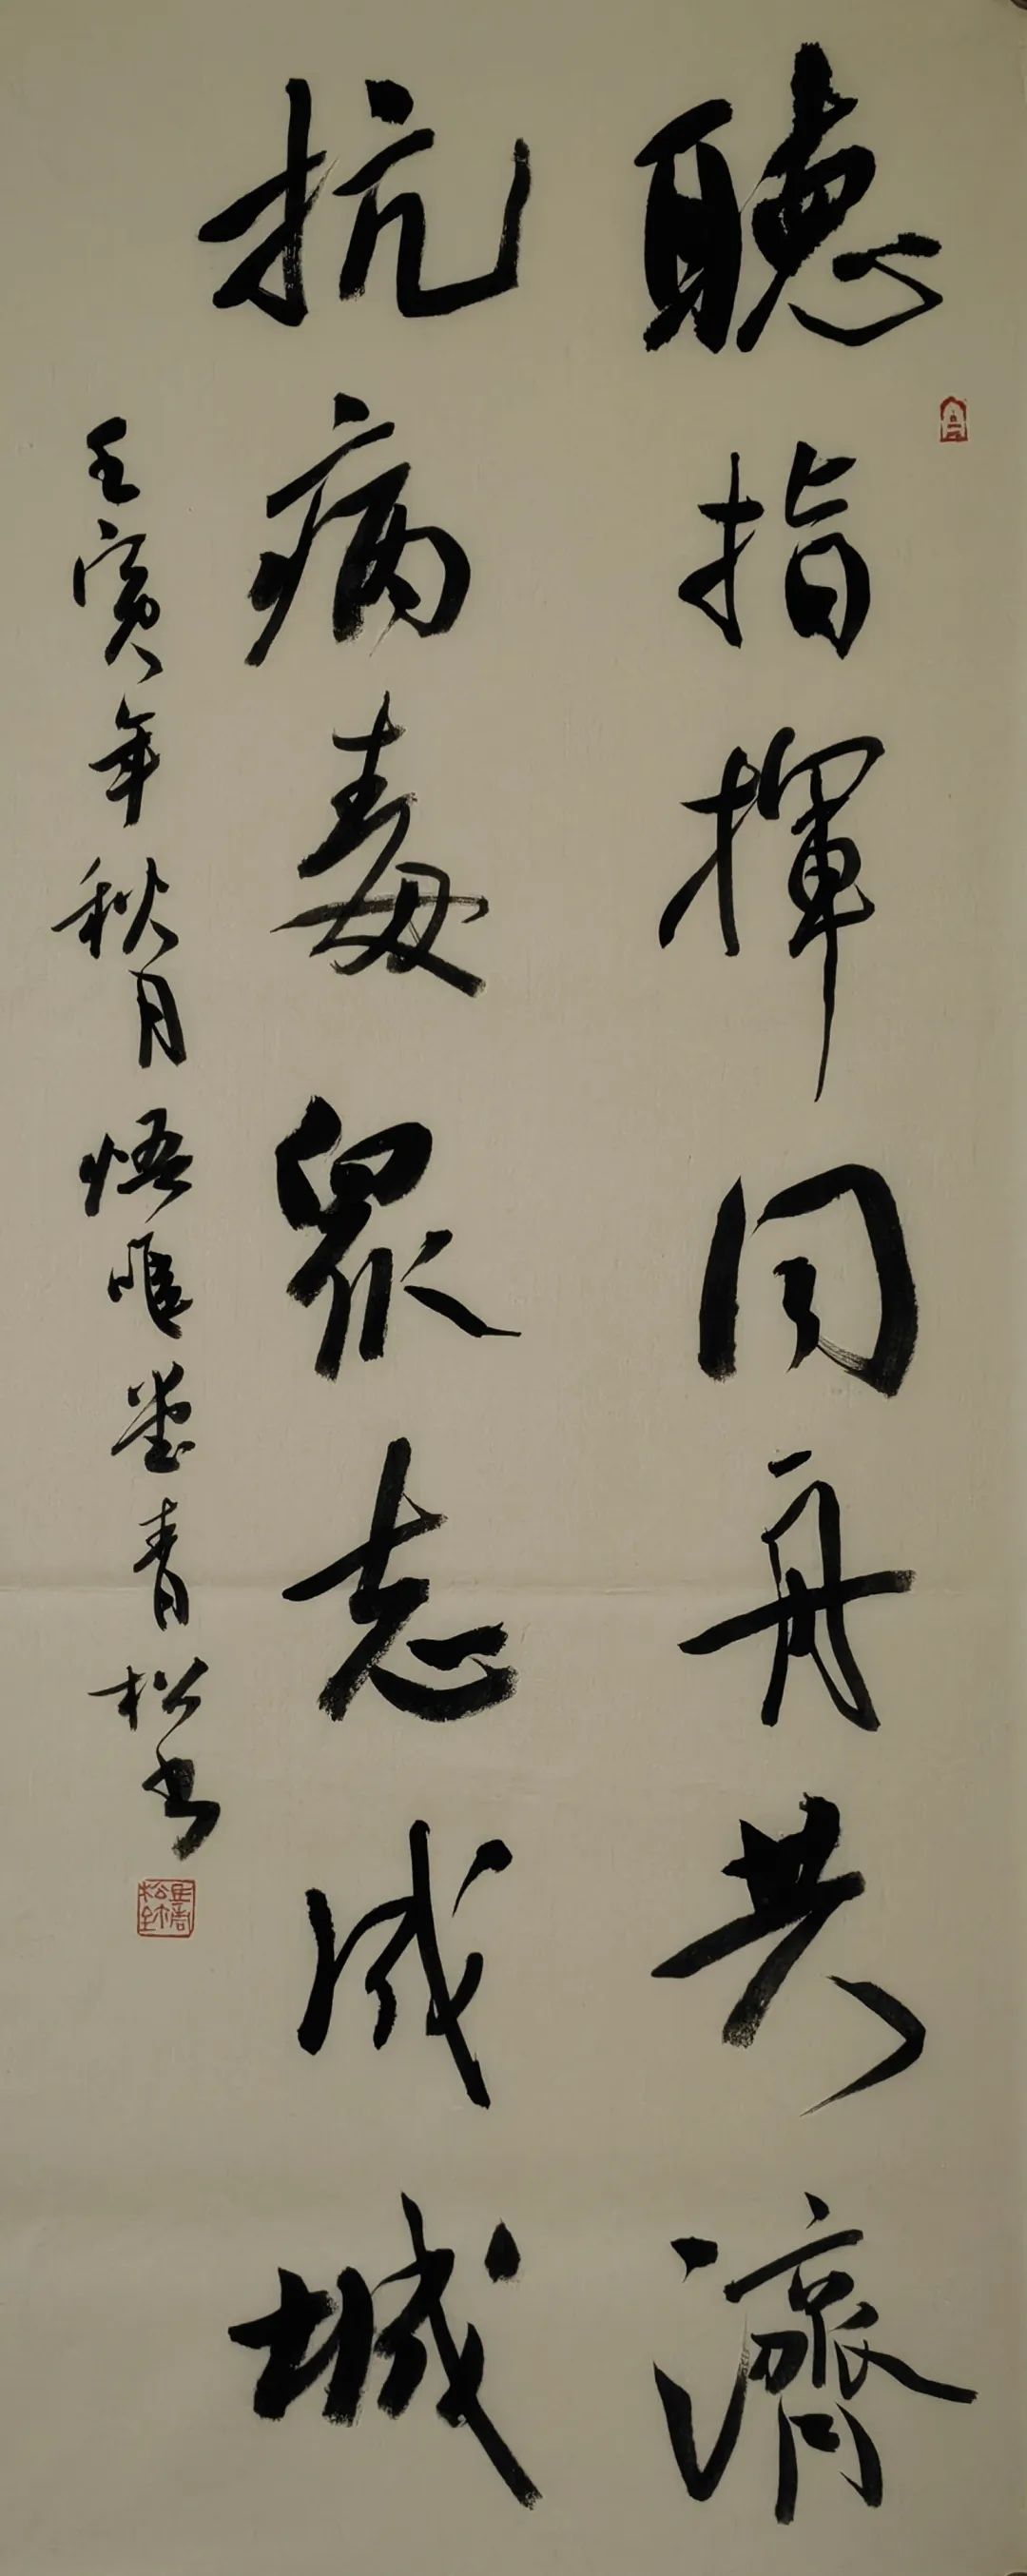 聽指揮同舟共濟
抗病毒眾志成城
壬寅年秋月悟唯堂青松書